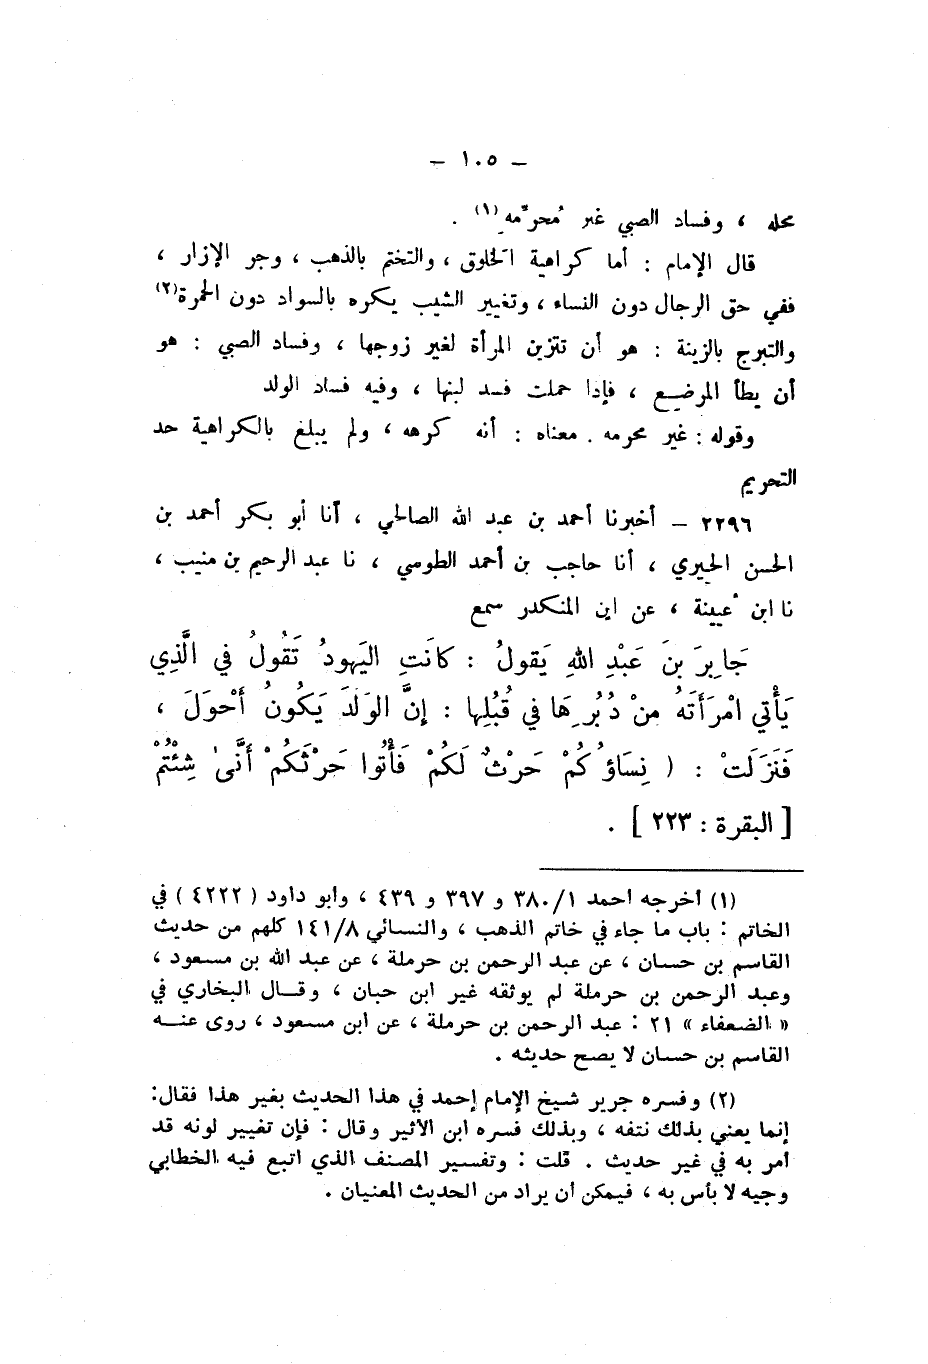 – ١٠٥ –
محله ، وفساد الصبي غير مُحرِّمه (١) .
قال الإمام : أما كراهية الخلوق ، والتختم بالذهب ، وجر الإزار ،
ففي حق الرجال دون النساء ، وتغيير الشيب يكره بالسواد دون الحمرة (٢)
والتبرج بالزينة : هو أن تتزين المرأة لغير زوجها ، وفساد الصبي : هو
أن يطأ المرضع ، فإذا حملت فسد لبنها ، وفيه فساد الولد
وقوله : غير محرمه . معناه : أنه كرهه ، ولم يبلغ بالكراهية حد
التحريم
٢٢٩٦ – أخبرنا أحمد بن عبد الله الصالحي ، أنا أبو بكر أحمد بن
الحسن الحيري ، أنا حاجب بن أحمد الطوسي ، نا عبد الرحيم بن منيب ،
نا ابن عُيينة ، عن ابن المنكدر سمع
جَابِرَ بنَ عَبْدِ اللهِ يَقولُ : كَانَتِ اليَهودُ تَقُولُ في الَّذِي
يَأْتي امْرَأَتَهُ مِنْ دُبُرِهَا في قُبُلِها : إنَّ الوَلَدَ يَكُونُ أَحْوَلَ ،
فَنَزَلَتْ : ( نِسَاؤُكُمْ حَرْثٌ لَكُمْ فَأْتُوا حَرْثَكُمْ أَنَّىٰ شِئْتُمْ
[ البقرة : ٢٢٣ ] .
(١) أخرجه أحمد ٣٨٠/١ و ٣٩٧ و ٤٣٩ ، وأبو داود ( ٤٢٢٢ ) في
الخاتم : باب ما جاء في خاتم الذهب ، والنسائي ١٤١/٨ كلهم من حديث
القاسم بن حسان ، عن عبد الرحمن بن حرملة ، عن عبد الله بن مسعود ،
وعبد الرحمن بن حرملة لم يوثقه غير ابن حبان ، وقال البخاري في
« الضعفاء » ٢١ : عبد الرحمن بن حرملة ، عن ابن مسعود ، روى عنه
القاسم بن حسان لا يصح حديثه .
(٢) وفسره جرير شيخ الإمام إحمد في هذا الحديث بغير هذا فقال:
إنما يعني بذلك نتفه ، وبذلك فسره ابن الأثير وقال : فإن تغيير لونه قد
أمر به في غير حديث . قلت : وتفسير المصنف الذي اتبع فيه الخطابي
وجيه لا بأس به ، فيمكن أن يراد من الحديث المعنيان .